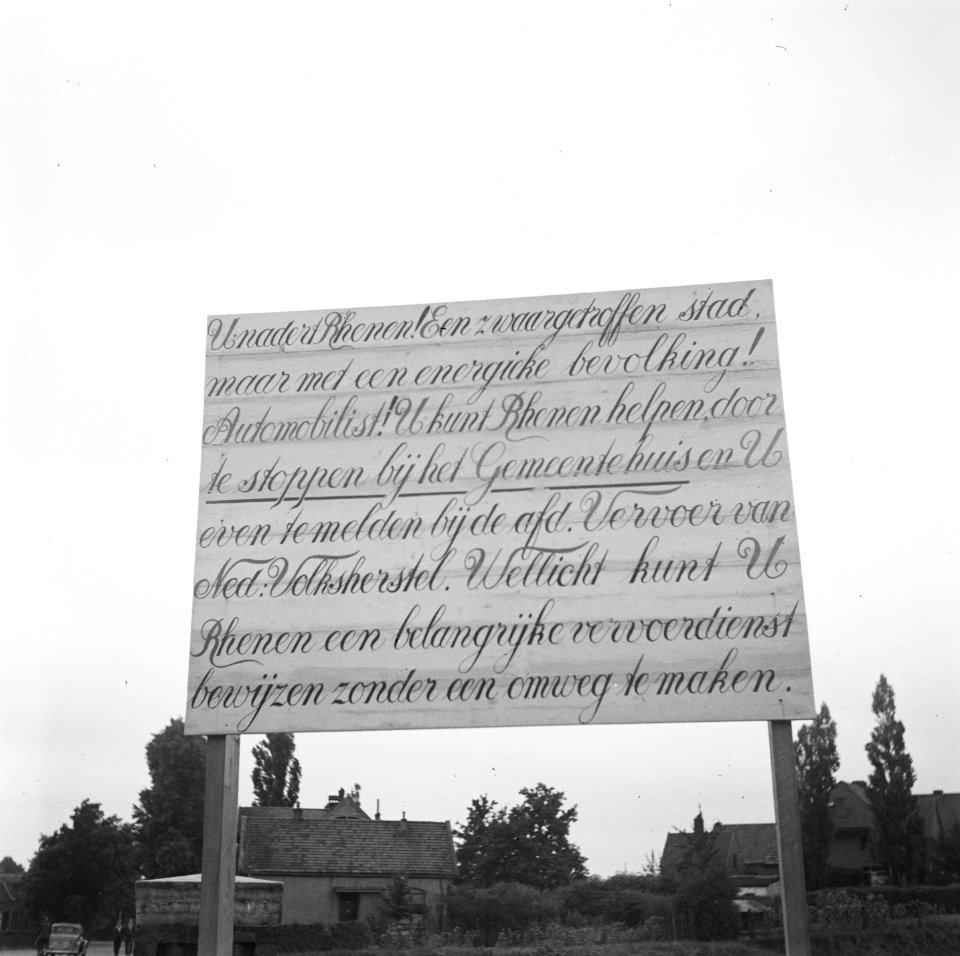 U nadert Rhenen! Een zwaargetroffen stad,
maar met een energieke bevolking!
Automobilist! U kunt Rhenen helpen, door
te stoppen bij het Gemeentehuis en U
even te melden bij de afd. Vervoer van
Ned: Volksherstel. Wellicht kunt U
Rhenen een belangrijke vervoerdienst
bewijzen zonder een omweg te maken.